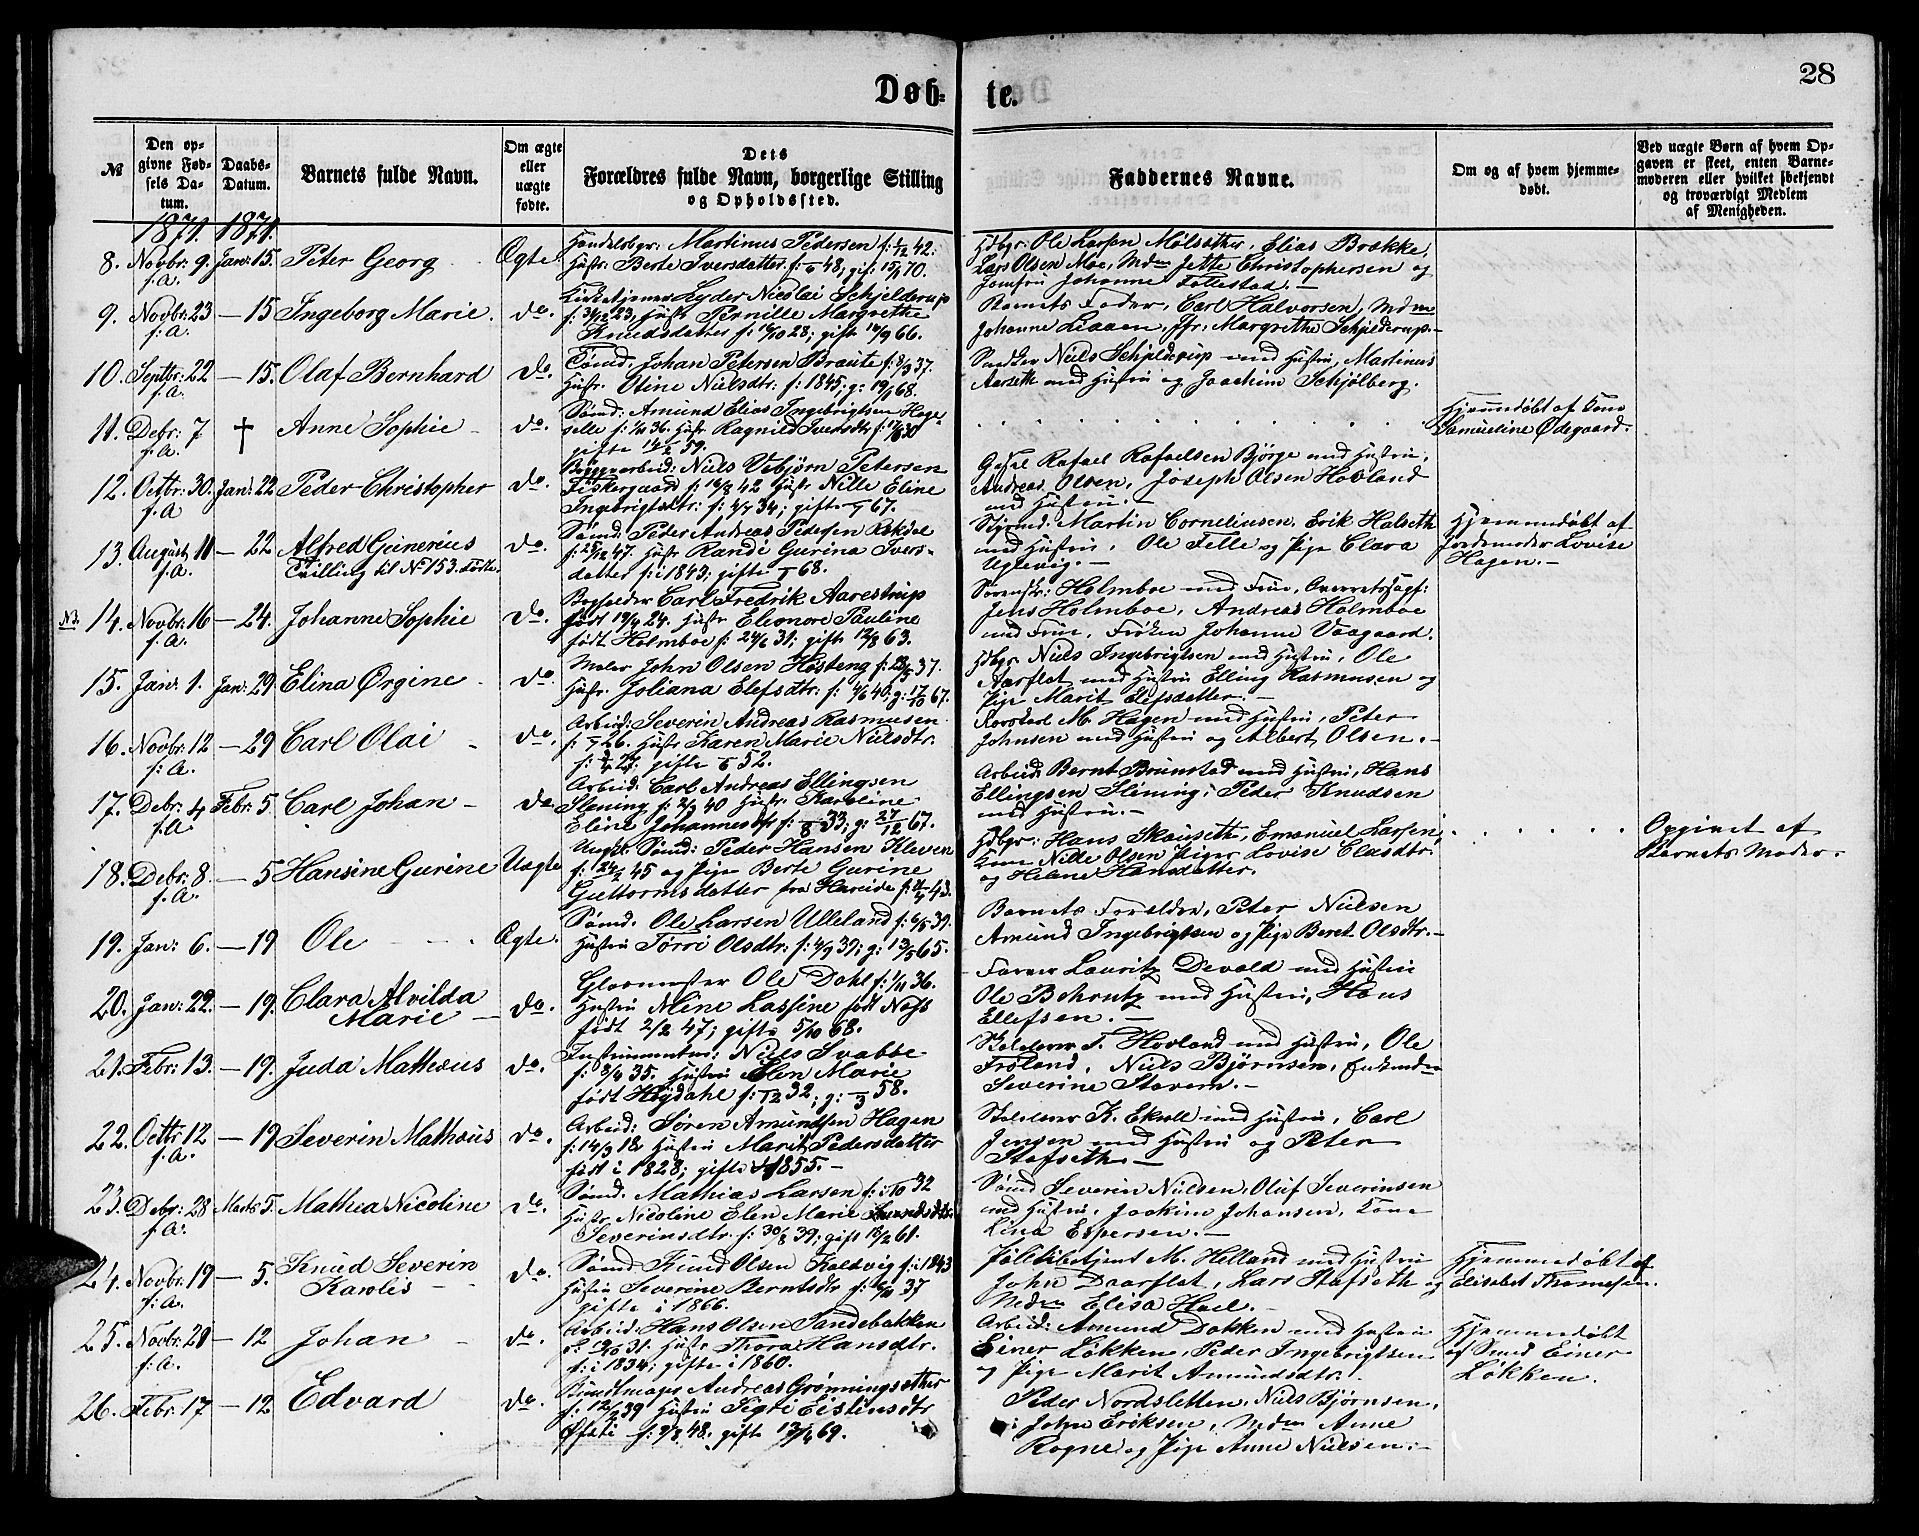 Døb-
te.
28
№
Den opgivne Fødsels Datum.
Daabs-Datum.
Barnets fulde Navn.
Om ægte eller uægte fødte.
Dets Forældres fulde Navn, borgerlige Stilling og Opholdssted.
Faddernes Navne.
Om og af hvem hjemmedøbt.
Ved uægte Børn af hvem Opgaven er skeet, enten Barnemoderen eller hvilket bekjendt og troværdigt Medlem af Menigheden.
1871. 1871.
8. Novbr: 9. f.A. Jan: 15. Peter Georg Ægte
Handelsbgr: Martinus Pedersen f: 1/12 42:
Hustr: Berte Iversdatter f: 48; gif: 15/1 70.
Hdbgr: Ole Larsen Molsæther, Elias Brække,
Lars Olsen Moe, Mdm Jette Christophersen og
Jomfru Johanne Follestad.—
9. Novbr: 23 f:A. — 15 Ingeborg Marie. do.
Kirketjener Lyder Nicolai Schjelderup
f: 23, Hustr Pernille Margrethe
Knudsdatter f: 16/10 28; gift 14/9 66.
Barnets Fader, Carl Halvorsen, Mdm
Johanne Liaaen, Jfr. Margrethe Schjelderup.—
10. Septbr: 22 f.A. — 15. Olaf Bernhard do.
Tømd: Johan Petersen Braute f: 8/3 37.
Hustr. Oline Nielsdtr: f: 1845; g: 19/1 68.
Snedker Niels Schjelderup med Hustru, Martinus
Aarseth med Hustru og Joachim Schjølberg.
11. Debr: 7 f.A. † Anne Sophie do.
Sømd: Amund Elias Ingebrigtsen Hage-
selle f: 36. Hustr Ragnild Iversdtr f: 30
gifte 59.
Hjemmedøbt af Kone
Samueline Ødegaard.
12. Octbr: 30. f.A Jan: 22 Peder Christopher do.
Bryggearbeid: Niels Vebjørn Petersen
Fiskergaard f: 16/8 42 Hustr Nille Eline
Ingebrigtsdtr: f: 4/7 34; gifte 67.
Rafael Rafaelsen Bjørge med Hustru,
Andreas Olsen, Joseph Olsen Hovland
med Hustru.—
13. August 11 f.A. — 22 Alfred Geinerius do.
Tvilling til No 153. Fødte.
Sømd: Peder Andreas Pedersen Rekdal
f: 25/12 47. Hustr Randi Gurina Ivers-
datter f: i 1843; gifte 68.
Styrmd: Martin Corneliusen. Erik Halseth
med Hustru, Ole Felle og Pige Clara
Uglevig.—
Hjemmedøbt af
Jordemoder Lovise
Hagen.—
14. Novbr: 16 f.A. — 24. Johanne Sophie do.
Bogholder Carl Fredrik Aarestrup
født 19/4 24. Hustr Eleonore Pauline
født Holmboe f: 24/6 31; gift 12/8 63.
Sorenskr: Holmboe med Frue, Overretssagf:
Jens Holmboe, Andreas Holmboe
med Frue, Frøken Johanne Vaagaard.
15. Jan: 1. Jan: 29 Elina Ørgine do.
Maler John Olsen Høsteng f: 37.
Hustr. Joliana Elefsdtr: f: 4/6 40; g: 17/10 67.
Hdbgr. Niels Ingebrigtsen med Hustru, Ole
Aarflot med Hustru Elling Rasmusen og
Pige Marit Elefsdatter.—
16. Novbr: 12 f:A. — 29 Carl Olai do.
Arbeid: Severin Andreas Rasmusen
f: 26. Hustr Karen Marie Nielsdtr.
f: 27; gifte 52.
M. Hagen med Hustru, Peter
Johnsen med Hustru og Albert Olsen.—
17. Debr: 4 f.A. Febr: 5. Carl Johan do
Arbeid: Carl Andreas Ellingsen
Slæning f: 2/9 40 Hustr. Karoline
Eline Johannesdtr f: 33; g: 27/12 67.
Arbeid: Bernt Brunstad med Hustru, Hans
Ellingsen Slening, Peder Knudsen
med Hustru.—
18. Debr: 8. f.A. — 5 Hansine Gurine Uægte
Ungk: Sømd: Peder Hansen Kleven
f: 24/2 45 og Pige Berte Gurine
Guttormsdatter fra Hareide f: 43.
Hdbgr: Hans Skouseth, Emanuel Larsen,
Kone Nille Olsen Piger Lovise Clasdtr:
og Helene Hansdatter.
Opgivet af
Barnets Moder.
19. Jan: 6. — 19 Ole Ægte.
Sømd. Ole Larsen Ulleland f: 6/5 39.
Hustru Torri Olsdtr: f: 4/9 39; g: 13/5 65.
Barnets Forældre, Peter Nielsen
Amund Ingebrigtsen og Pige Beret Olsdtr.—
20. Jan: 22. — 19. Clara Alvilda Marie do.
Ole Dahl f: 1/11 36.
Hustru Aline Lassine født Næss
født 2/2 47; gifte 5/10 68.
Farver Lauritz Devold med Hustru
Ole Behrntz med Hustru, Hans
Ellefsen.—
21. Febr: 13. — 19. Juda Mathæus do.
Instrumentm: Niels Svabbe
f: 8/4 35. Hustru Elen Marie
født Hejdahl f: 32; g: 58.
Skolelærer T. Hovland med Hustru, Ole
Frøland, Niels Bjørnsen, Enkemdm
Severine Stavem.—
22. Octbr 12 f.A. — 19 Severin Mathæus do.
Arbeid: Søren Amundsen Hagen
f: 14/3 18 Hustru Marit Pedersdatter
født i 1828; gifte 1855.—
Skolelærer K. Ekroll med Hustru, Carl
Jensen med Hustru og Peter
Stafseth.—
23. Debr: 28 f.A. Marts 5. Mathea Nicoline do.
Sømd. Mathias Larsen f: 32
Hustr Nicoline Elen Marie
Severinsdtr. f: 30/8 39; gift 61.
Sømd Severin Nielsen, Oluf Severinsen
med Hustru, Joakim Johansen, Kone
Lina Espersen.—
24. Novbr: 19 f.A. — 5. Knud Severin Karolis do.
Sømd Knud Olsen Koldvig f: i 1843
Hustru Severine Berntsdtr f: 37
gifte i 1866.
Politibetjent M. Helland med Hustru
John Aarflot, Lars Stafseth og
Mdm Elisa Hoel.—
Hjemmedøbt af
Elisabet Thomesen.
25. Novbr: 28 f:A. — 12 Johan do.
Arbeid: Hans Olsen Sandebakken
31. Hustr. Thora Hansdtr.
f: i 1834; gifte i 1860.
Arbeid: Amund Dokken med Hustru
Einer Løkken, Peder Ingebrigtsen
og Pige Marit Amundsdtr.
Hjemmedøbt
af Sømd Einer
Løkken.
26. Febr: 17 — 12 Edvard do.
Andreas Grønningsæther
f: 12/2 39 Hustru Sigri Eistinsdtr
f: 9/8 48. gifte 69.
Peder Nordsletten, Niels Bjørnsen,
John Eriksen, Mdm Anne
Rogne og Pige Anne Nielsen:—